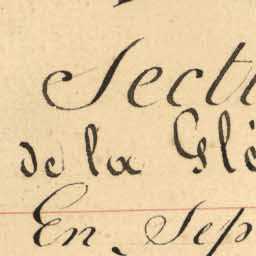 Secti
de la Glè
En Sep